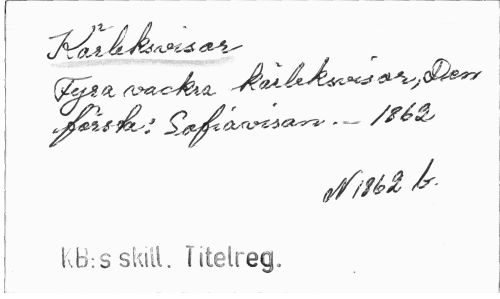 Kärleksvisor
Fyra vackra kärleksvisor, Den
första: Sofiavisan. – 1862
N 1862 b.
KB:s skill. Titelreg.